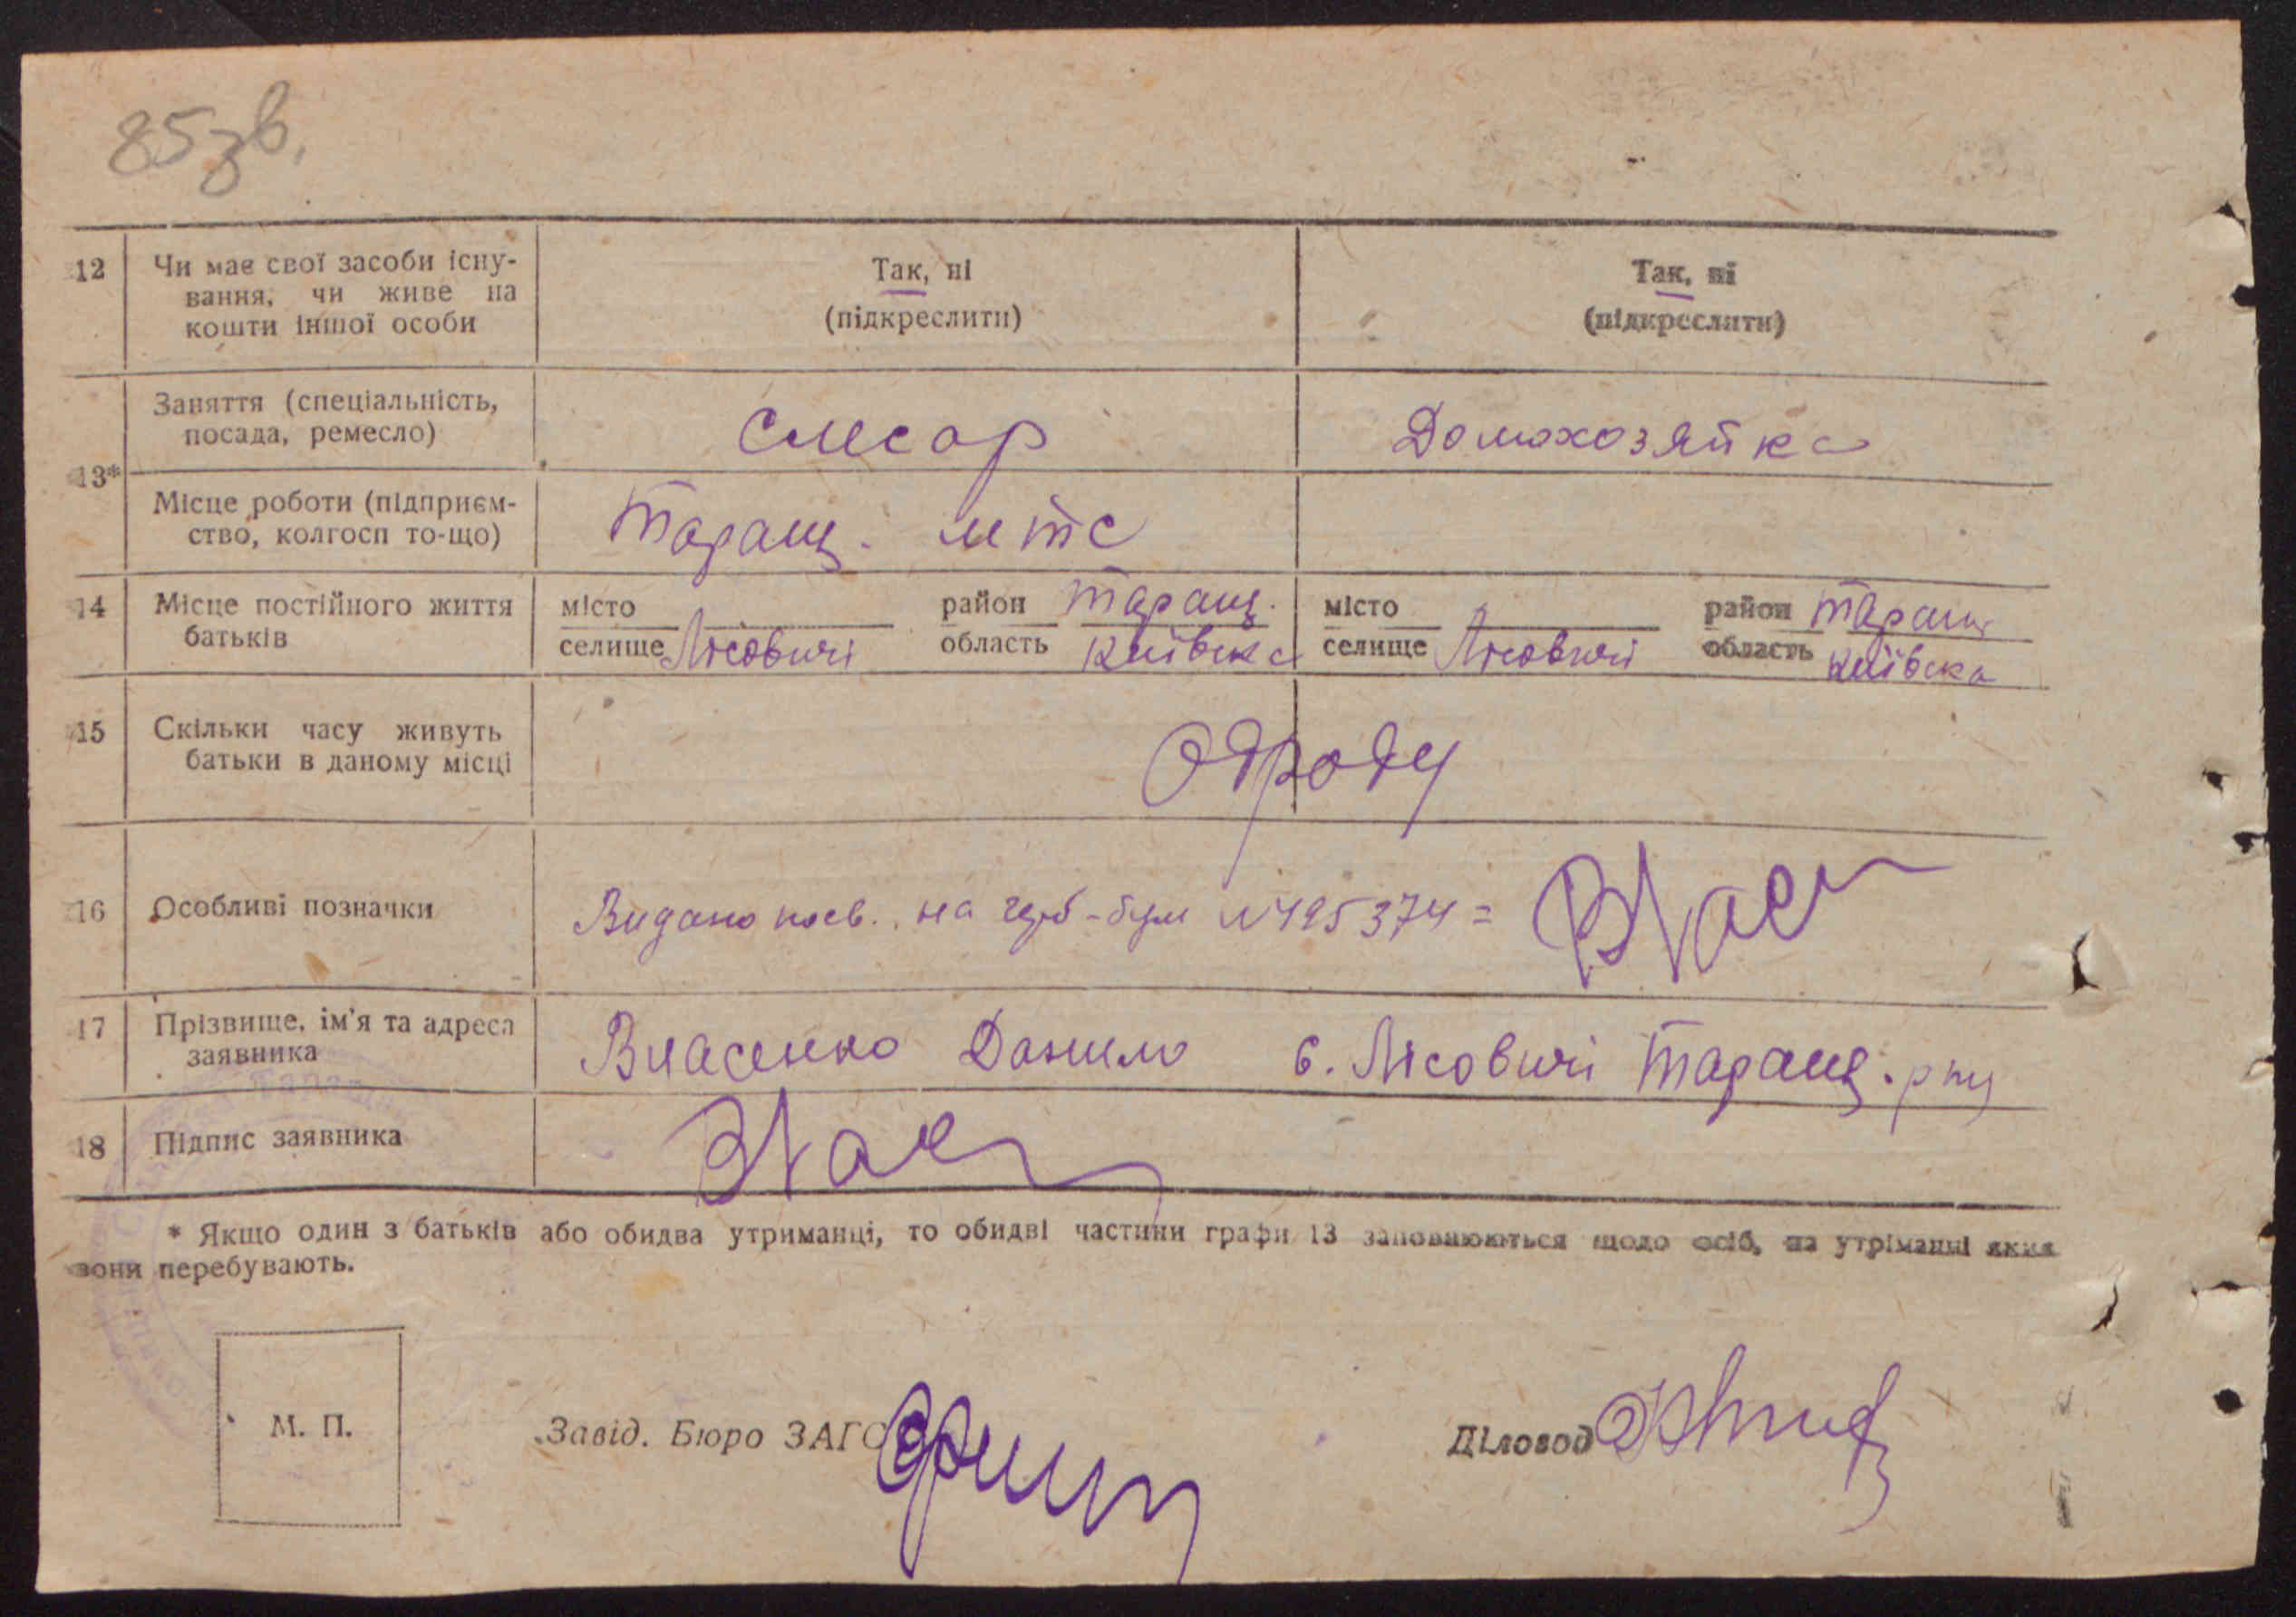 85 зв.
12 Чи має свої засоби існу-
вання, чи живе на
кошти іншої особи
Так, ні
(підкреслити)
Так, ні
(підкреслити)
13*
Заняття (спеціальність,
посада, ремесло)
Слесар
Домохозяйка
Місце роботи (підприєм-
ство, колгосп то-що)
Таращ. мтс
14 Місце постійного життя
батьків
місто
селище Лісовичі
район Таращ.
область Київська
місто
селище Лісовичі
район Таращ
область Київська
15 Скільки часу живуть
батьки в даному місці
Одроду
16 Особливі позначки
Видано посв. на
17 Прізвище, ім'я та адреса
заявника
Власенко Данило с. Лісовичі Таращ. р-ну
18 Підпис заявника
* Якщо один з батьків або обидва утриманці, то обидві частини графи 13 заповнюються щодо осіб, на утріманні яких
вони перебувають.
М. П.
Завід. Бюро ЗАГС
Діловод